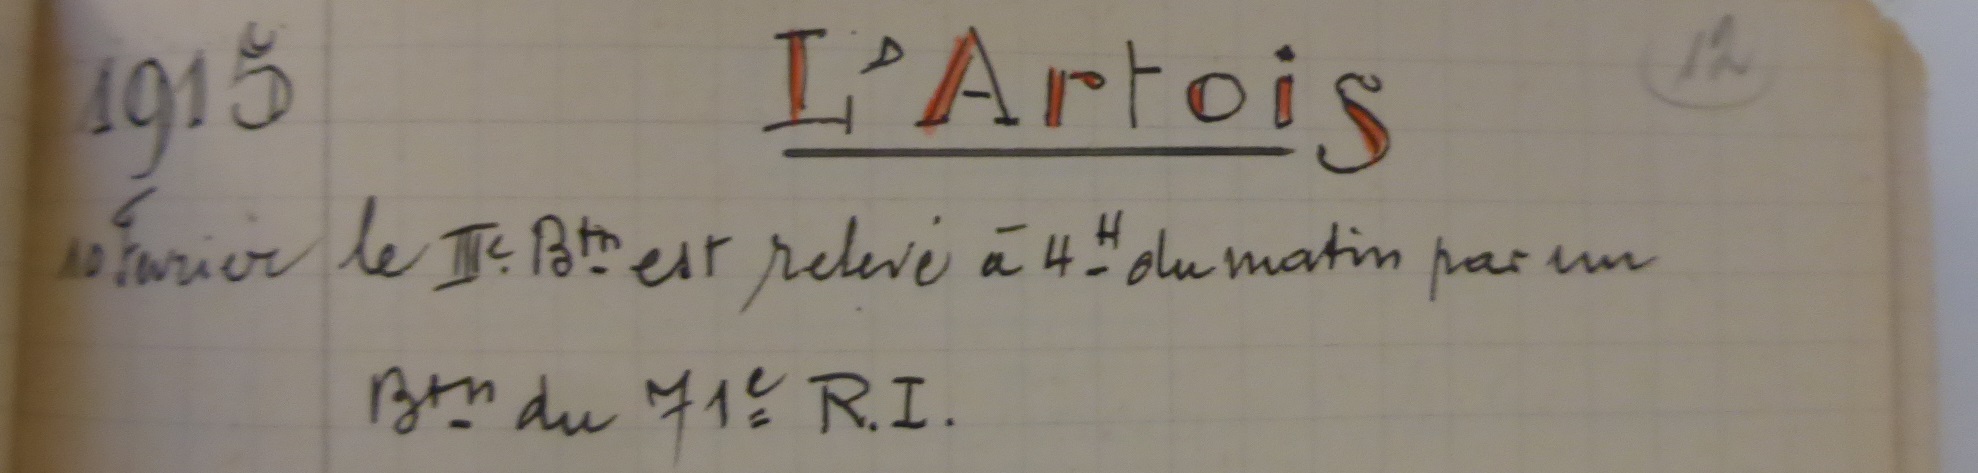 1915 L'Artois 12
10 Fevrier le IIIe Btn est relevé à 4H du matin par un
Btn du 71e R.I.